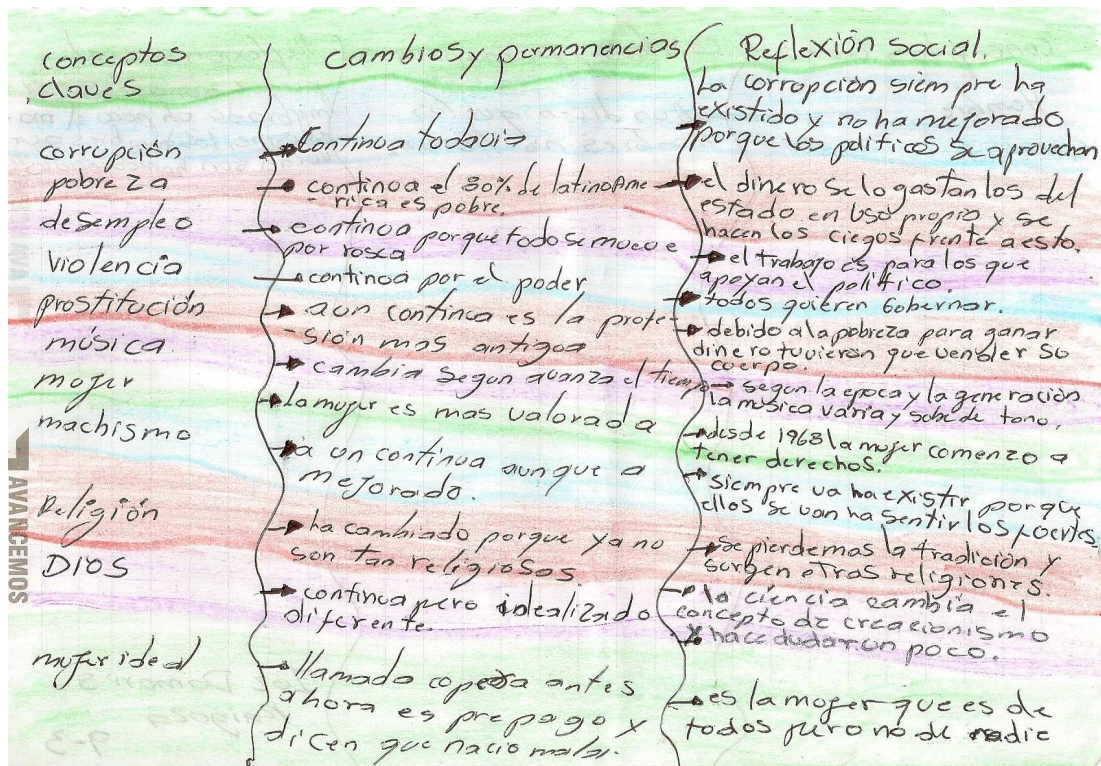 conceptos
claves
corrupción
pobreza
desempleo
violencia
prostitución
música
mujer
machismo
Religión
DIOS
mujer ideal
cambios y permanencias
Continua todavia
continua el 80% de latinoAme
rica es pobre.
continua porque todo se mueve
por rosca
continua por el poder
aun continua es la profe
sión mas antigua
cambia segun avanza el tiempo
La mujer es mas valorada
a un continua aunque a
mejorado.
ha cambiado porque ya no
son tan religiosas.
continua pero idealizado
diferente.
llamada copera antes
ahora es prepago y
dicen que nacio mala.
Reflexión social.
La corrupción siempre ha
existido y no ha mejorado
porque los politicos se aprovechan
el dinero se lo gastan los del
estado en uso propio y se
hacen los ciegos frente a esto.
el trabajo es para los que
apoyan el político.
todos quieren Gobernar.
debido a la pobreza para ganar
dinero tuvieron que vender su
cuerpo.
segun la epoca y la generación
la música varia y sube de tono.
desde 1968 la mujer comenzo a
tener derechos.
siempre va ha existir porque
ellos se van ha sentir los fuertes.
se pierde mas la tradición y
surgen otras religiones.
la ciencia cambia el
concepto de creacionismo
y hace dudar un poco.
es la mujer que es de
todos pero no de nadie
AVANCEMOS
9-3